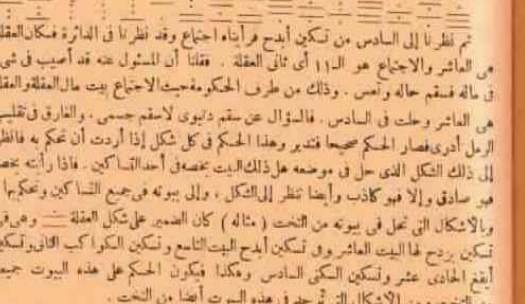 ثم نظرنا إلى السادس من تسكين أبدح فرأيناه اجتماع وقد نظرنا فى الدائرة فكان العقلة
هى العاشر والاجتماع هو الـ١١ أى ثانى العقلة . فقلنا أن المسئول عنه قد أصيب فى شىء
فى ماله فسقم حاله ونعس . وذلك من طرف الحكومة حيث الاجتماع بيت مال العقلة والعقلة
هى العاشر وحلت فى السادس . فالسؤال عن سقم دنيوى لاسقم جسمى . والفارق فى تقليب
الرمل أدرى فصار الحكم صحيحا فتدبر وهذا الحكم فى كل شكل إذا أردت أن تحكم به فانظر
إلى ذلك الشكل الذى حل فى موضعه هل ذلك البيت يخصه فى أحد التساكين . فاذا رأيته يخصه
فهو صادق وإلا فهو كاذب وأيضا تنظر إلى الشكل . وإلى بيوته فى جميع التساكين وتحكم بها
وبالأشكال التى تحل فى بيوته من التخت ( مثاله ) كان الضمير على شكل العقلة وهى فى
تسكين بزدح لها البيت العاشر وفى تسكين أبدح البيت التاسع وتسكين الكواكب الثانى وتسكين
أيقغ الحادى عشر وتسكين السكنى السادس وهكذا فيكون الحكم على هذه البيوت جميعا
الأشكال التى توجد فى هذه البيوت أيضا من التخت .